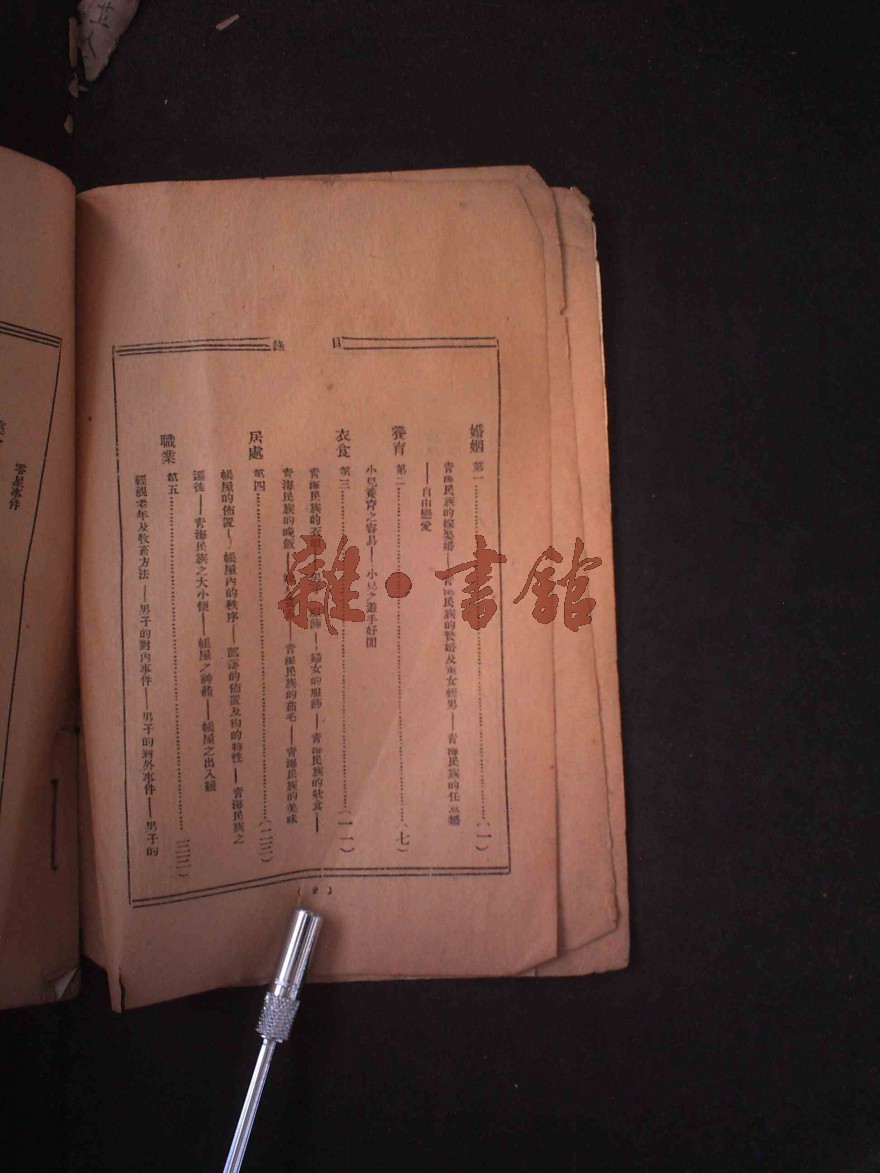 目錄
婚姻 第一……………(一)
青海民族的嫁娶婚——青海民族的贅婚及重女輕男——青海民族的任意婚
——自由戀愛
養育 第二……………(七)
小兒養育之容易——小兒之遊手好閒
衣食 第三……………(一一)
青海民族的衣服——服飾——婦女的服飾——青海民族的飲食——
青海民族的晚飯——青海民族的茹毛——青海民族的美味
居處 第四……………(二三)
帳屋的佈置——帳屋內的秩序——部落的佈置及狗的特性——青海民族之
遷徙——青海民族之大小便——帳屋之神體——帳屋之出入難
職業 第五……………(三三)
輕視老年及牧畜方法——男子的對內事件——男子的對外事件——男子的
(2)
零星事件
雜·書館